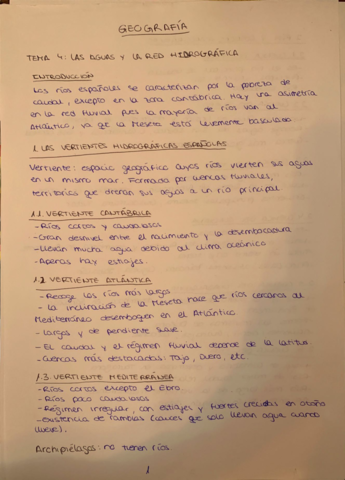 GEOGRAFÍA
TEMA 4: LAS AGUAS Y LA RED HIDROGRÁFICA
INTRODUCCIÓN
Los ríos españoles se caracterizan por la pobreza de
caudal, excepto en la zona cantábrica. Hay una asimetría
en la red fluvial pues la mayoría de ríos van al
Atlántico, ya que la Meseta está levemente basculada
1. LAS VERTIENTES HIDROGRÁFICAS ESPAÑOLAS
Vertiente: espacio geográfico cuyos ríos vierten sus aguas
en un mismo mar. Formada por cuencas fluviales,
territorios que drenan sus aguas a un río principal
1.1. VERTIENTE CANTÁBRICA
- Ríos cortos y caudalosos
- Gran desnivel entre el nacimiento y la desembocadura
- Llevan mucha agua debido al clima oceánico
- Apenas hay estiajes.
1.2. VERTIENTE ATLÁNTICA
- Recoge los ríos más largos
- La inclinación de la Meseta hace que ríos cercanos al
Mediterráneo desemboquen en el Atlántico
- Largos y de pendiente suave
- El caudal y el régimen fluvial depende de la latitud
- Cuencas más destacadas: Tajo, Duero, etc
1.3. VERTIENTE MEDITERRÁNEA
- Ríos cortos excepto el Ebro
- Ríos poco caudalosos
- Régimen irregular, con estiajes y fuertes crecidas en otoño
- Existencia de ramblas (cauces que solo llevan agua cuando
llueve).
Archipiélagos: no tienen ríos
1